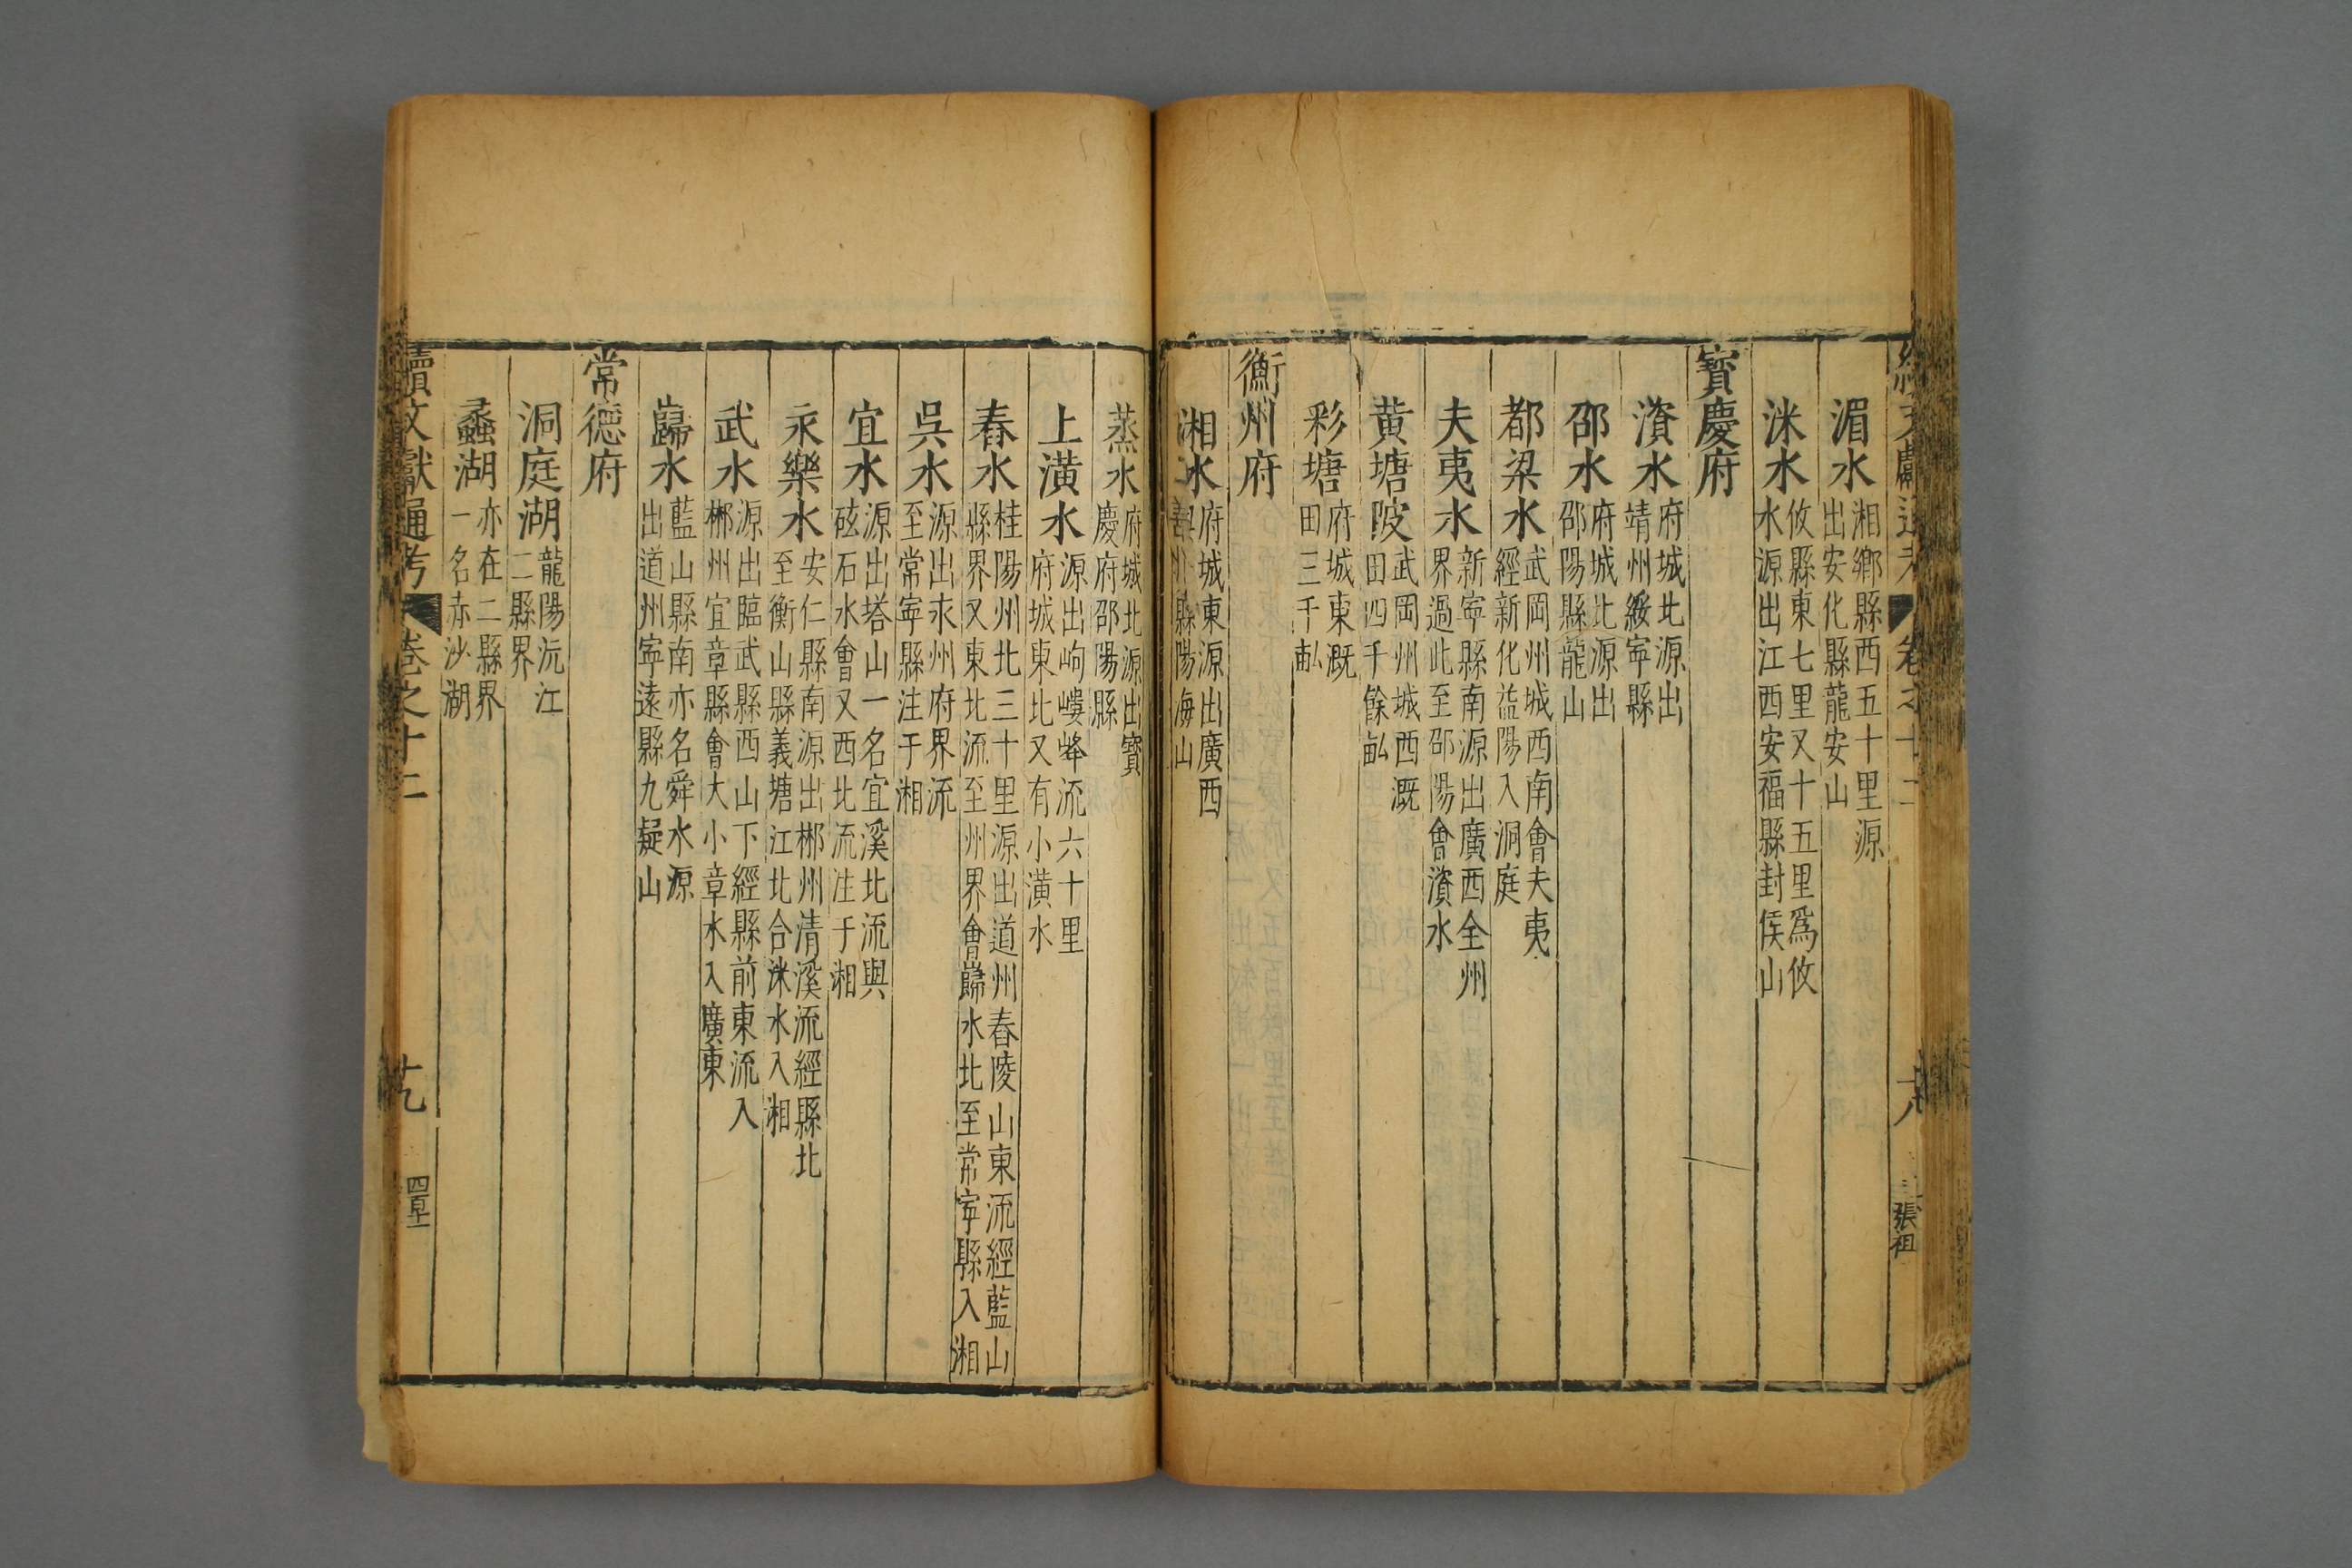 湄水湘鄉縣西五十里源
出安化縣龍安山
洣水攸縣東七里又十五里爲攸
水源出江西安福縣封侯山
寳慶府
濱水府城北源出
靖州綏寧縣
邵水府城北源出
邵陽縣龍山
都梁水武岡州城西南會夫夷
經新化益陽入洞庭
夫夷水新寧縣南源出廣西全州
界過此至邵陽會濱水
黃塘陂武岡州城西溉
田四千餘畝
彩塘府城東溉
田三千畝
衡州府
湘水府城東源出廣西
縣陽海山
蒸水府城北源出寳
慶府邵陽縣
上潢水源出岣嶁峰流六十里
府城東北又有小潢水
舂水桂陽州北三十里源出道州舂陵山東流經藍山
縣界又東北流至州界會巋水北至常寧縣入湘
吳水源出永州府界流
至常寧縣注于湘
宜水源出塔山一名宜溪北流與
砝石水會又西北流注于湘
永樂水安仁縣南源出郴州清溪流經縣北
至衡山縣義塘江北合洣水入湘
武水源出臨武縣西山下經縣前東流入
郴州宜章縣會大小章水入廣東
巋水藍山縣南亦名舜水源
出道州寧遠縣九疑山
常德府
洞庭湖龍陽沅江
二縣界
蠡湖亦在二縣界
一名赤沙湖
續文獻通考 卷之十二 十九
張祖